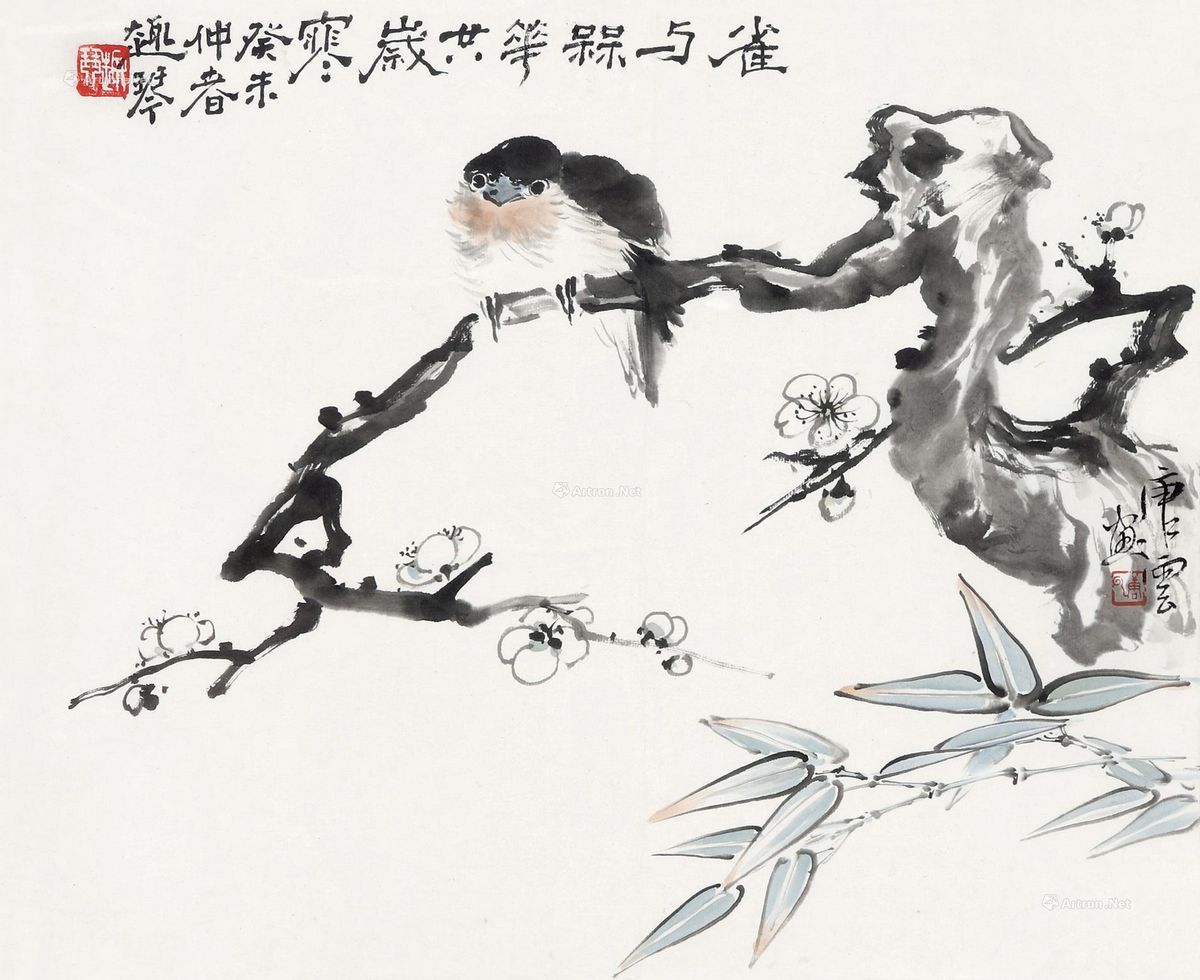 雀与槑華共歲寒
癸未
仲春
趣琴
唐雲
畫
Artron.Net
Artron.Net